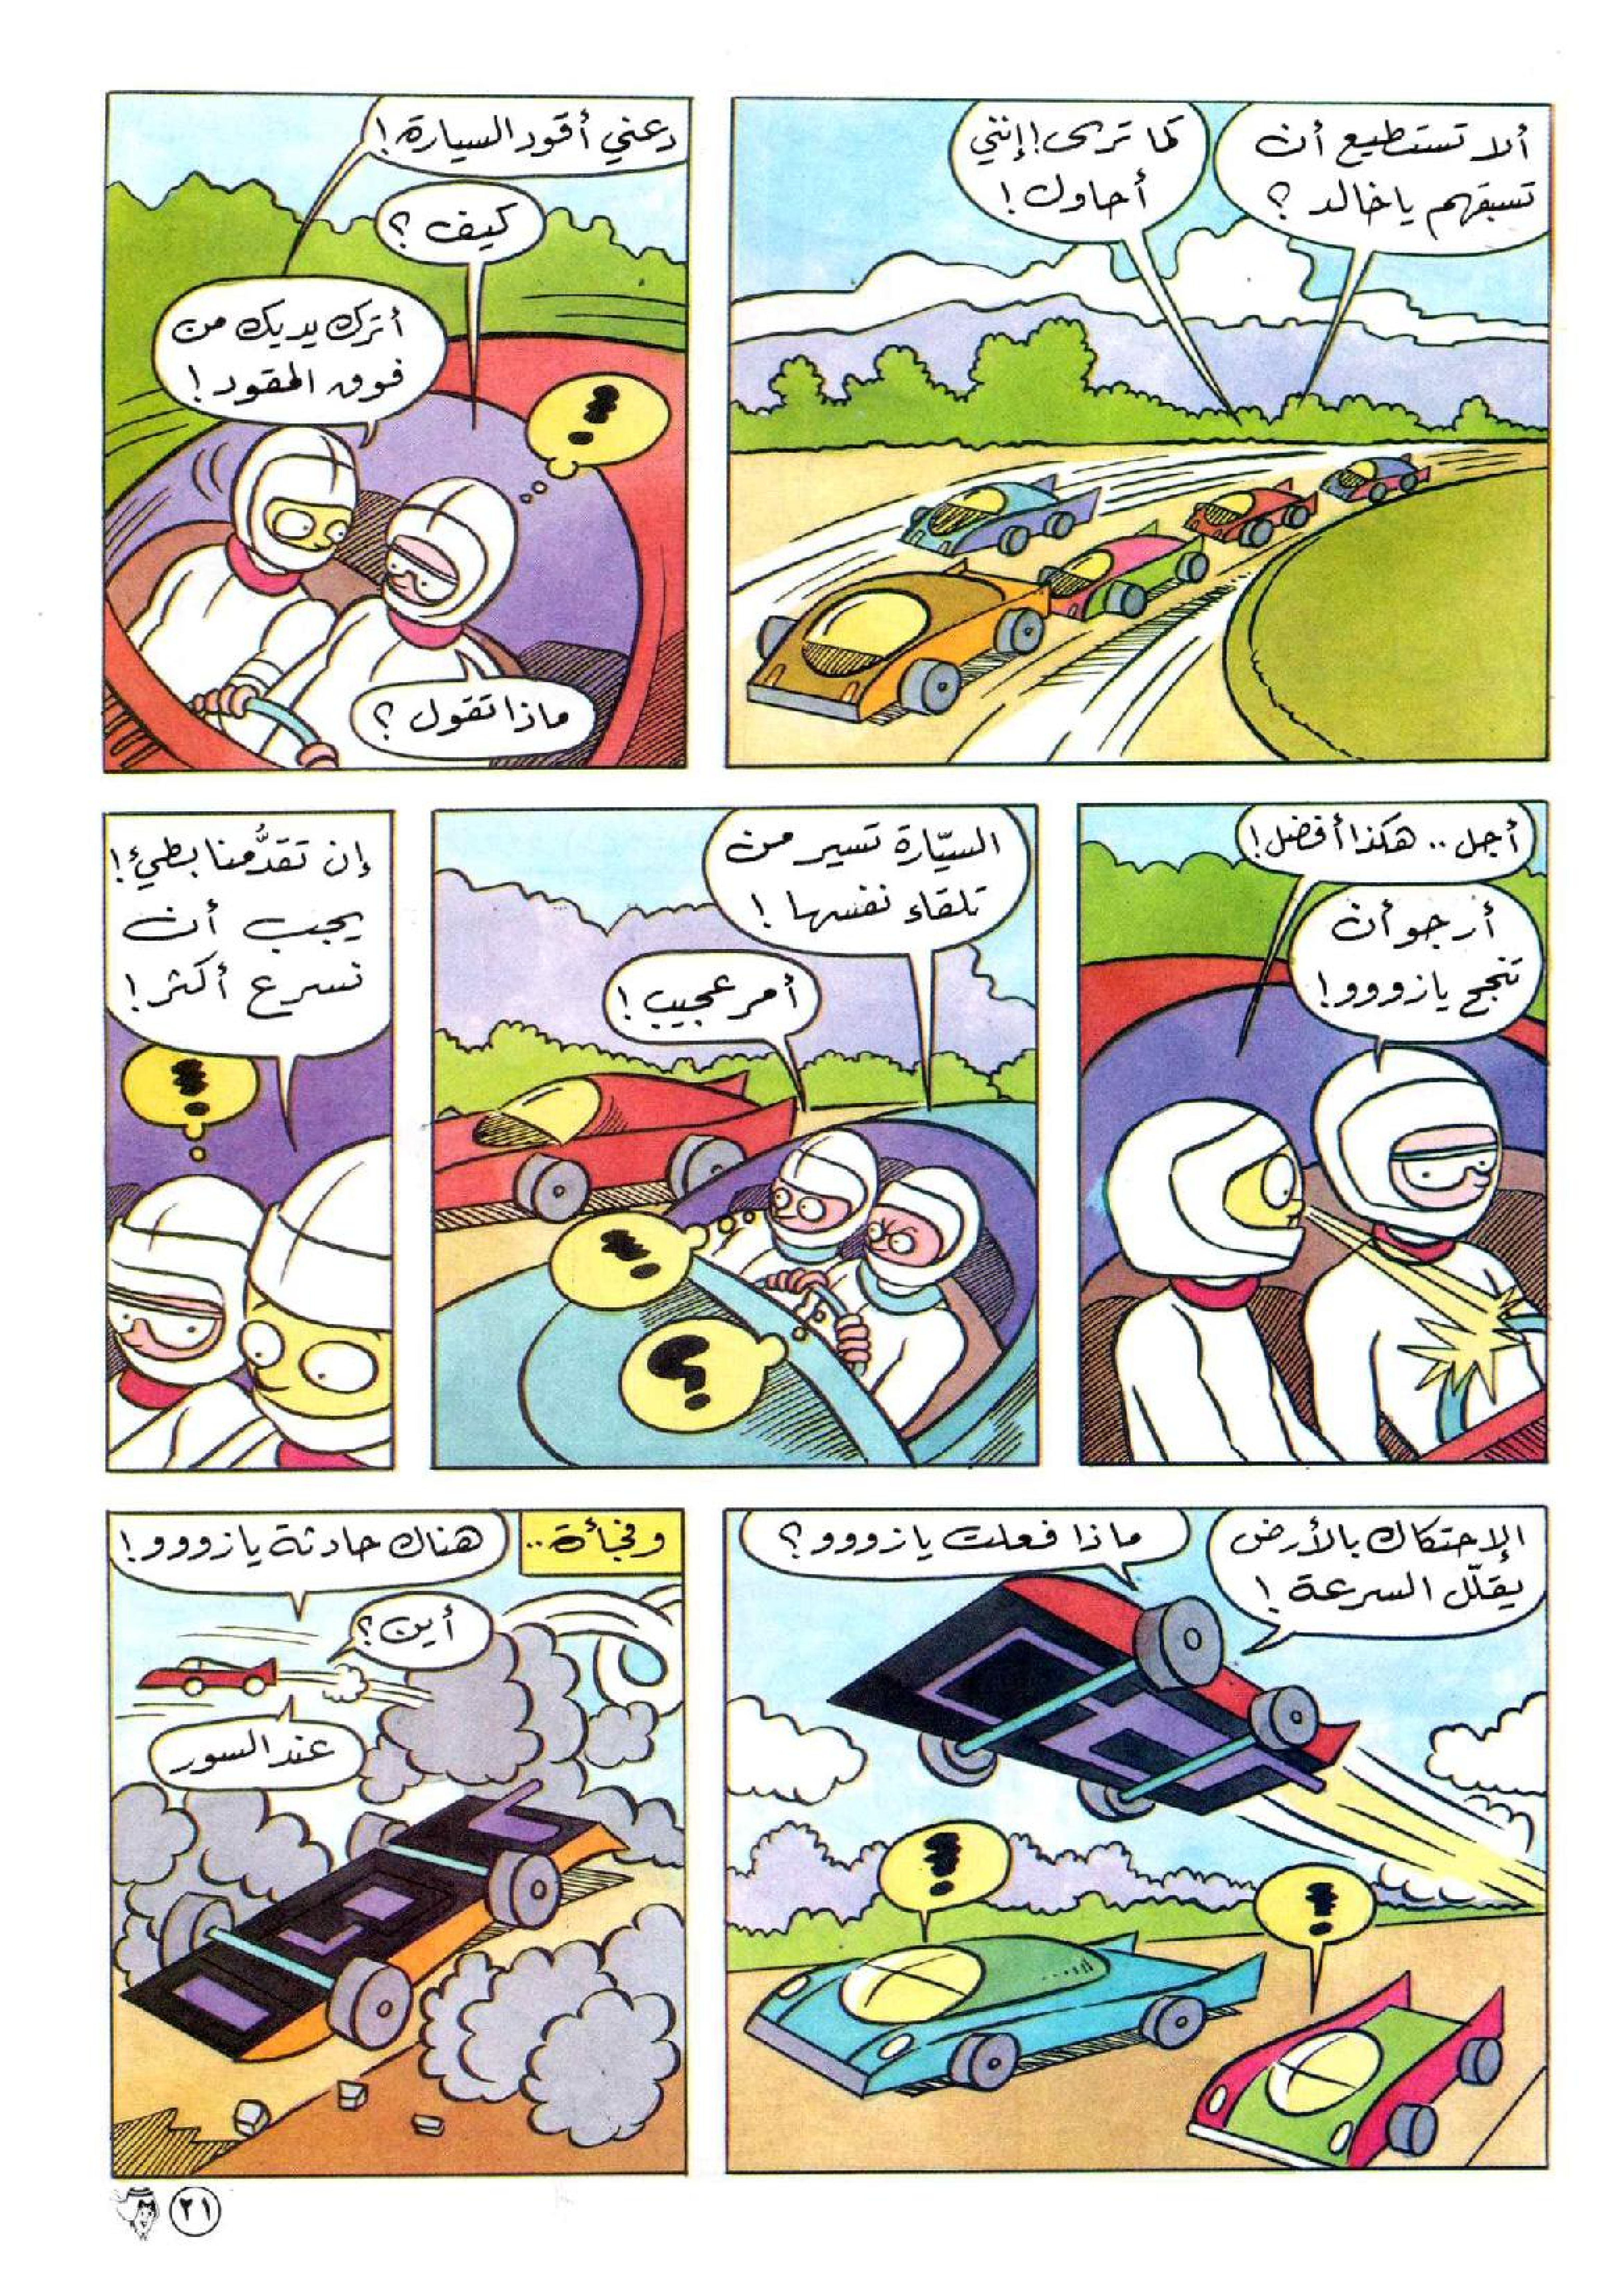 ألا تستطيع أن
تسبقهم يا خالد ؟
كما ترى! إنني
أحاول !
دعني أقود السيارة !
كيف ؟
أترك يديك من
فوق المقود !
ماذا تقول ؟
أجل .. هكذا أفضل !
أرجو أن
تنجح يا زووو !
السيّارة تسير من
تلقاء نفسها !
أمر عجيب !
إن تقدُّمنا بطيء !
يجب أن
نسرع أكثر !
ماذا فعلت يا زووو ؟
الإحتكاك بالأرض
يقلّل السرعة !
وفجأة ..
هناك حادثة يا زووو !
أين ؟
عند السور
٢١